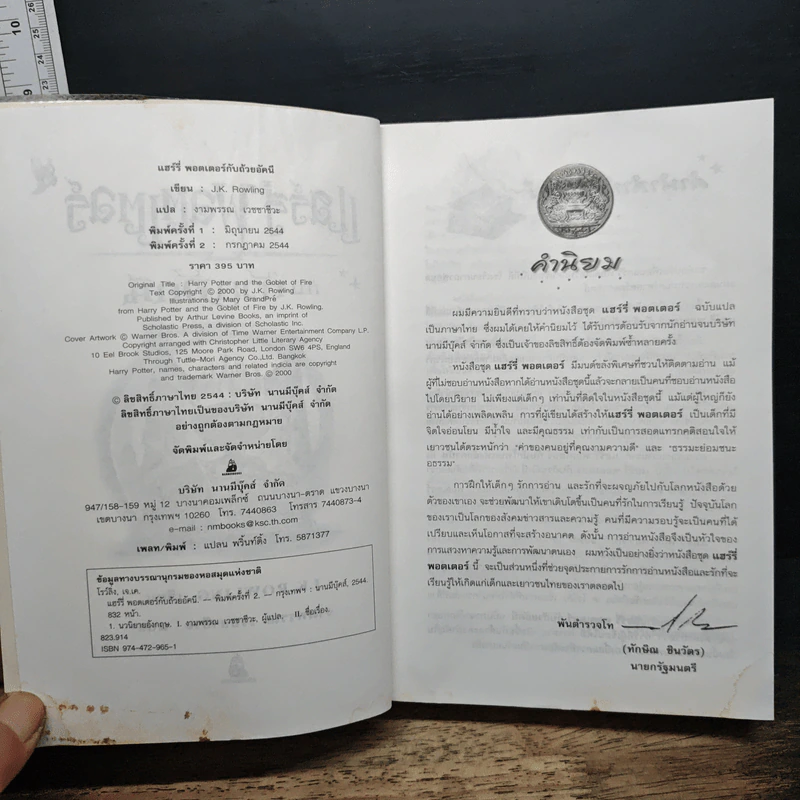 10
9
25
24
23
แฮร์รี่ พอตเตอร์กับถ้วยอัคนี
เขียน : J.K. Rowling
แปล : งามพรรณ เวชชาชีวะ
พิมพ์ครั้งที่ 1 : มิถุนายน 2544
พิมพ์ครั้งที่ 2 : กรกฎาคม 2544
ราคา 395 บาท
Original Title : Harry Potter and the Goblet of Fire
Text Copyright © 2000 by J.K. Rowling
Illustrations by Mary GrandPré
from Harry Potter and the Goblet of Fire by J.K. Rowling.
Published by Arthur Levine Books, an imprint of
Scholastic Press, a division of Scholastic Inc.
Cover Artwork © Warner Bros. A division of Time Warner Entertainment Company LP.
Copyright arranged with Christopher Little Literary Agency
10 Eel Brook Studios, 125 Moore Park Road, London SW6 4PS, England
Through Tuttle-Mori Agency Co., Ltd. Bangkok
Harry Potter, names, characters and related indicia are copyright
and trademark Warner Bros © 2000
© ลิขสิทธิ์ภาษาไทย 2544 : บริษัท นานมีบุ๊คส์ จำกัด
ลิขสิทธิ์ภาษาไทยเป็นของบริษัท นานมีบุ๊คส์ จำกัด
อย่างถูกต้องตามกฎหมาย
จัดพิมพ์และจัดจำหน่ายโดย
บริษัท นานมีบุ๊คส์ จำกัด
947/158-159 หมู่ 12 บางนาคอมเพล็กซ์ ถนนบางนา-ตราด แขวงบางนา
เขตบางนา กรุงเทพฯ 10260 โทร. 7440863 โทรสาร 7440873-4
e-mail : nmbooks@ksc.th.com
เพลท/พิมพ์ : แปลน พริ้นท์ติ้ง โทร. 5871377
ข้อมูลทางบรรณานุกรมของหอสมุดแห่งชาติ
โรว์ลิ่ง, เจ.เค.
แฮร์รี่ พอตเตอร์กับถ้วยอัคนี. — พิมพ์ครั้งที่ 2. — กรุงเทพฯ : นานมีบุ๊คส์, 2544.
832 หน้า.
1. นวนิยายอังกฤษ. I. งามพรรณ เวชชาชีวะ, ผู้แปล. II. ชื่อเรื่อง.
823.914
ISBN 974-472-965-1
คำนิยม
ผมมีความยินดีที่ทราบว่าหนังสือชุด แฮร์รี่ พอตเตอร์ ฉบับแปล
เป็นภาษาไทย ซึ่งผมได้เคยให้คำนิยมไว้ ได้รับการต้อนรับจากนักอ่านจนบริษัท
นานมีบุ๊คส์ จำกัด ซึ่งเป็นเจ้าของลิขสิทธิ์ต้องจัดพิมพ์ซ้ำหลายครั้ง
หนังสือชุด แฮร์รี่ พอตเตอร์ มีมนต์ขลังพิเศษที่ชวนให้ติดตามอ่าน แม้
ผู้ที่ไม่ชอบอ่านหนังสือหากได้อ่านหนังสือชุดนี้แล้วจะกลายเป็นคนที่ชอบอ่านหนังสือ
ไปโดยปริยาย ไม่เพียงแต่เด็กๆ เท่านั้นที่ติดใจในหนังสือชุดนี้ แม้แต่ผู้ใหญ่ก็ยัง
อ่านได้อย่างเพลิดเพลิน การที่ผู้เขียนได้สร้างให้แฮร์รี่ พอตเตอร์ เป็นเด็กที่มี
จิตใจอ่อนโยน มีน้ำใจ และมีคุณธรรม เท่ากับเป็นการสอดแทรกคติสอนใจให้
เยาวชนได้ตระหนักว่า "ค่าของคนอยู่ที่คุณงามความดี" และ "ธรรมะย่อมชนะ
อธรรม"
การฝึกให้เด็กๆ รักการอ่าน และรักที่จะผจญภัยไปกับโลกหนังสือด้วย
ตัวของเขาเอง จะช่วยพัฒนาให้เขาเติบโตขึ้นเป็นคนที่รักในการเรียนรู้ ปัจจุบันโลก
ของเราเป็นโลกของสังคมข่าวสารและความรู้ คนที่มีความรอบรู้จะเป็นคนที่ได้
เปรียบและเห็นโอกาสที่จะสร้างอนาคต ดังนั้น การอ่านหนังสือจึงเป็นหัวใจของ
การแสวงหาความรู้และการพัฒนาตนเอง ผมหวังเป็นอย่างยิ่งว่าหนังสือชุด แฮร์รี่
พอตเตอร์ นี้ จะเป็นส่วนหนึ่งที่ช่วยจุดประกายการรักการอ่านหนังสือและรักที่จะ
เรียนรู้ให้เกิดแก่เด็กและเยาวชนไทยของเราตลอดไป
พันตำรวจโท
(ทักษิณ ชินวัตร)
นายกรัฐมนตรี